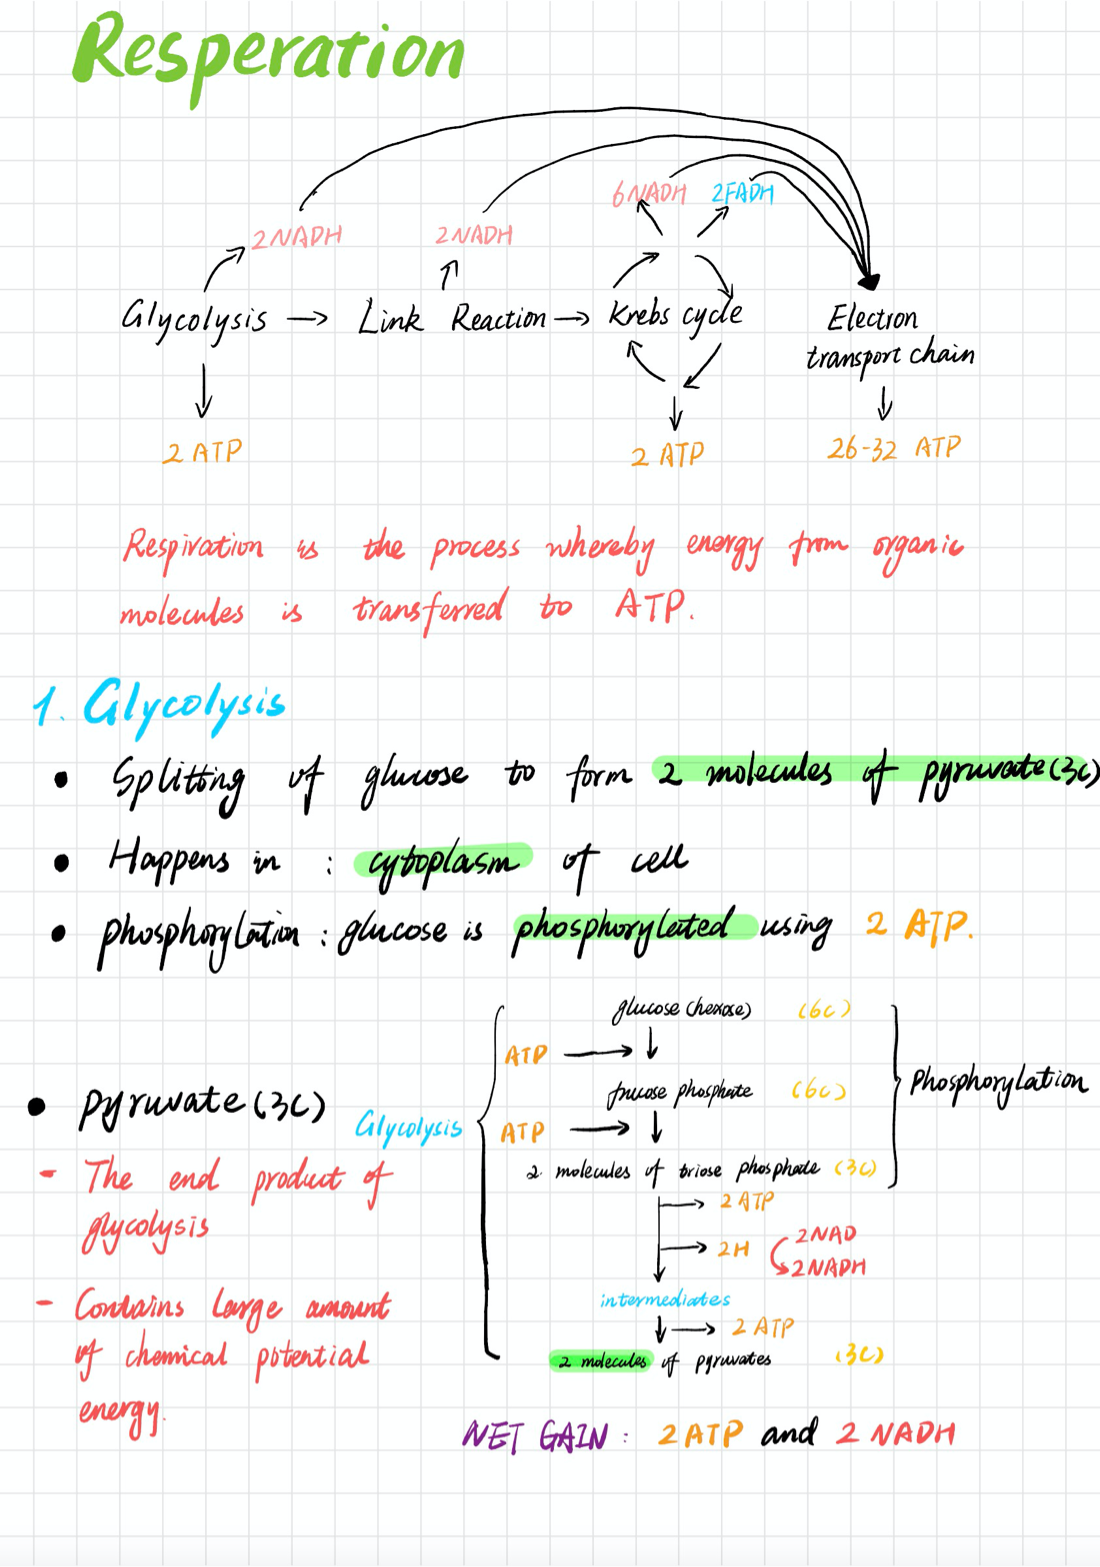 Resperation
6NADH 2FADH
2NADH 2NADH
Glycolysis → Link Reaction → Krebs cycle Electron
transport chain
2 ATP 2 ATP 26-32 ATP
Respiration is the process whereby energy from organic
molecules is transferred to ATP.
1. Glycolysis
• Splitting of glucose to form 2 molecules of pyruvate (3C)
• Happens in : cytoplasm of cell
• phosphorylation : glucose is phosphorylated using 2 ATP.
glucose (hexose) (6C)
ATP
frucose phosphate (6C)
ATP
2 molecules of triose phosphate (3C)
Phosphorylation
Glycolysis
2 ATP
2H 2NAD
2NADH
intermediates
2 ATP
2 molecules of pyruvates (3C)
• Pyruvate (3C)
- The end product of
glycolysis
- Contains large amount
of chemical potential
energy.
NET GAIN : 2 ATP and 2 NADH